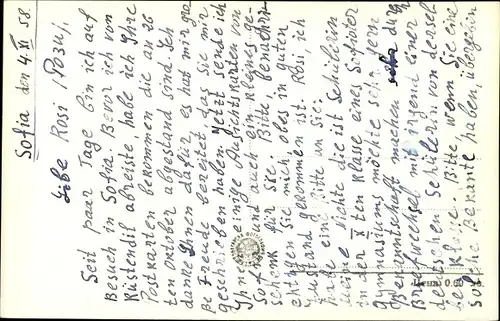 Sofia den 4.XI 58.
Liebe Rosi /Рози/,
Seit paar Tage bin ich auf
Besuch in Sofia. Bevor ich von
Küstendil abreiste habe ich Ihre
Postkarten bekommen die an 26
ten Oktober abgestand sind. Ich
danke Ihnen dafür es hat mir gro
ße Freude bereitet, das Sie mir
geschrieben haben. Jetzt sende ich
Ihnen einige Ansichtskarten von
Sofia und auch ein kleines Ge-
schenk für Sie. Bitte benachri-
chtigen Sie mich, obes in guten
Zustand gekommen ist. Rosi, ich
habe eine Bitte an Sie:
Meine Nichte die ist Schülerin
in der X ten Klasse eines Sofioter
Gymnasiums möchte sehr gern
Bekanntschaft machen durch
Briefwechsel mit irgend einer
deutschen Schülern von derself
ben Klasse. Bitte wenn Sie eine
solche Bekante haben, übergeben
Цена 0.60 лв.